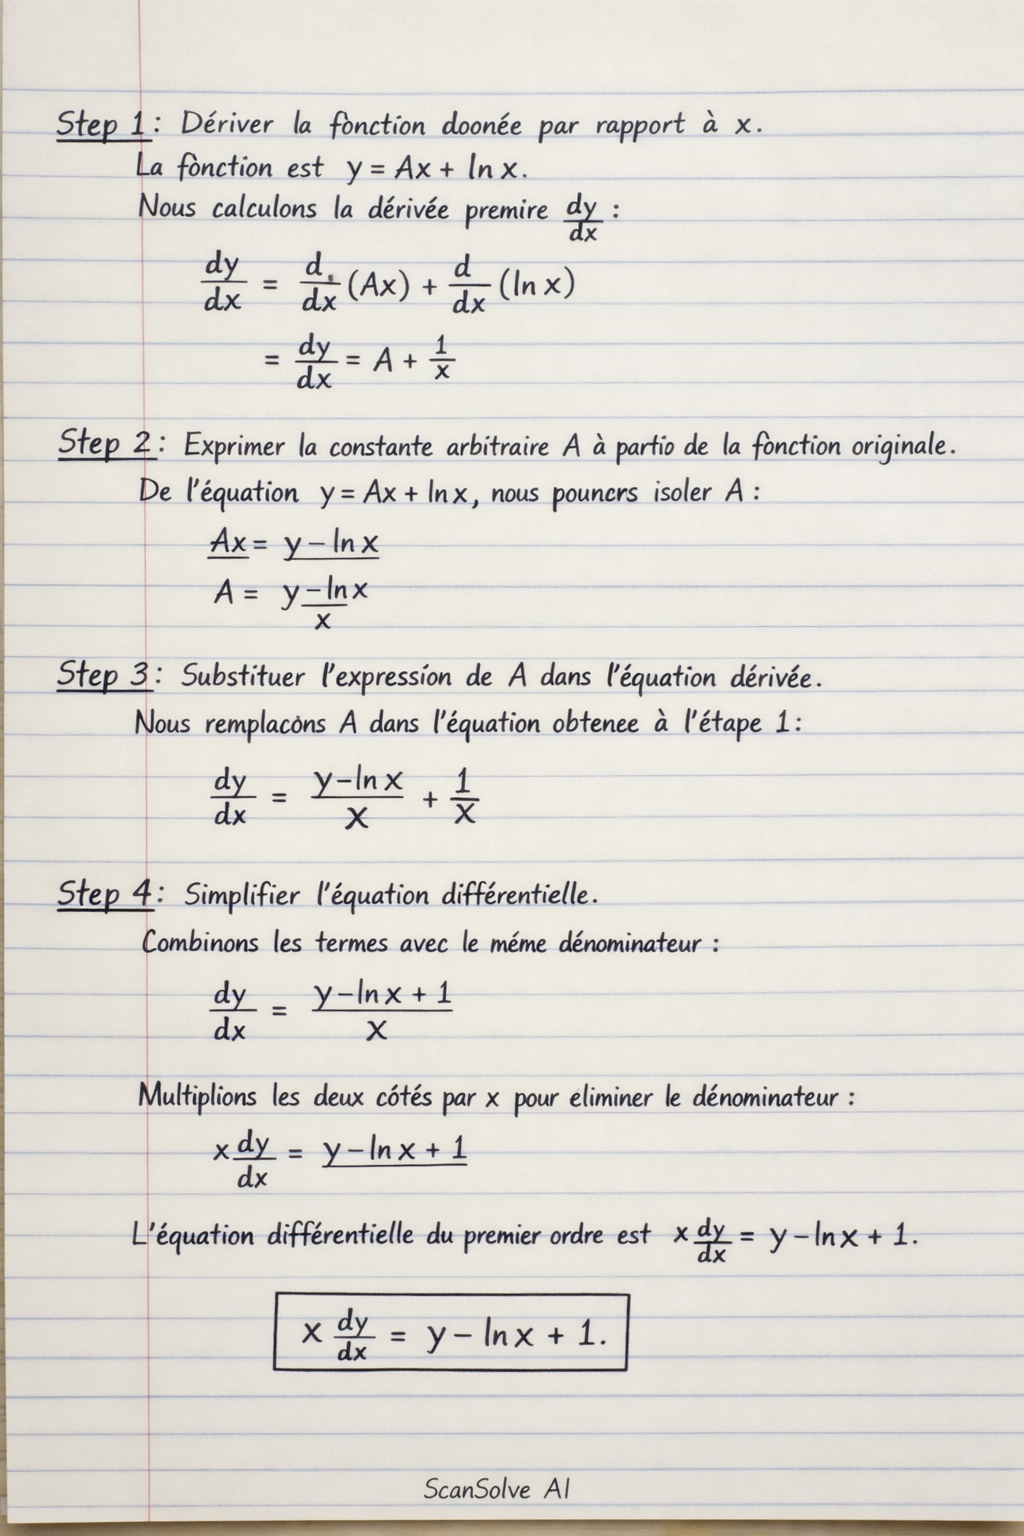 Step 1: Dériver la fònction doonée par rapport à x.
La fònction est y = Ax + ln x.
Nous calculons la dérivée premire dy/dx :
dy/dx = d/dx (Ax) + d/dx (ln x)
= dy/dx = A + 1/x
Step 2: Exprimer la constante arbitraire A à partio de la fònction originale.
De l'équation y = Ax + ln x, nous pouncrs isoler A :
Ax = y - ln x
A = y - ln x / x
Step 3: Substituer l'expressíon de A dans l'équation dérivée.
Nous remplacòns A dans l'équation obtenee à l'étape 1:
dy/dx = y - ln x / x + 1/x
Step 4: Simplifier l'équation différentielle.
Combinons les termes avec le méme dénominateur :
dy/dx = y - ln x + 1 / x
Multiplions les deux cótés par x pour eliminer le dénominateur :
x dy/dx = y - ln x + 1
L'équation différentielle du premier ordre est x dy/dx = y - ln x + 1.
x dy/dx = y - ln x + 1.
ScanSolve AI